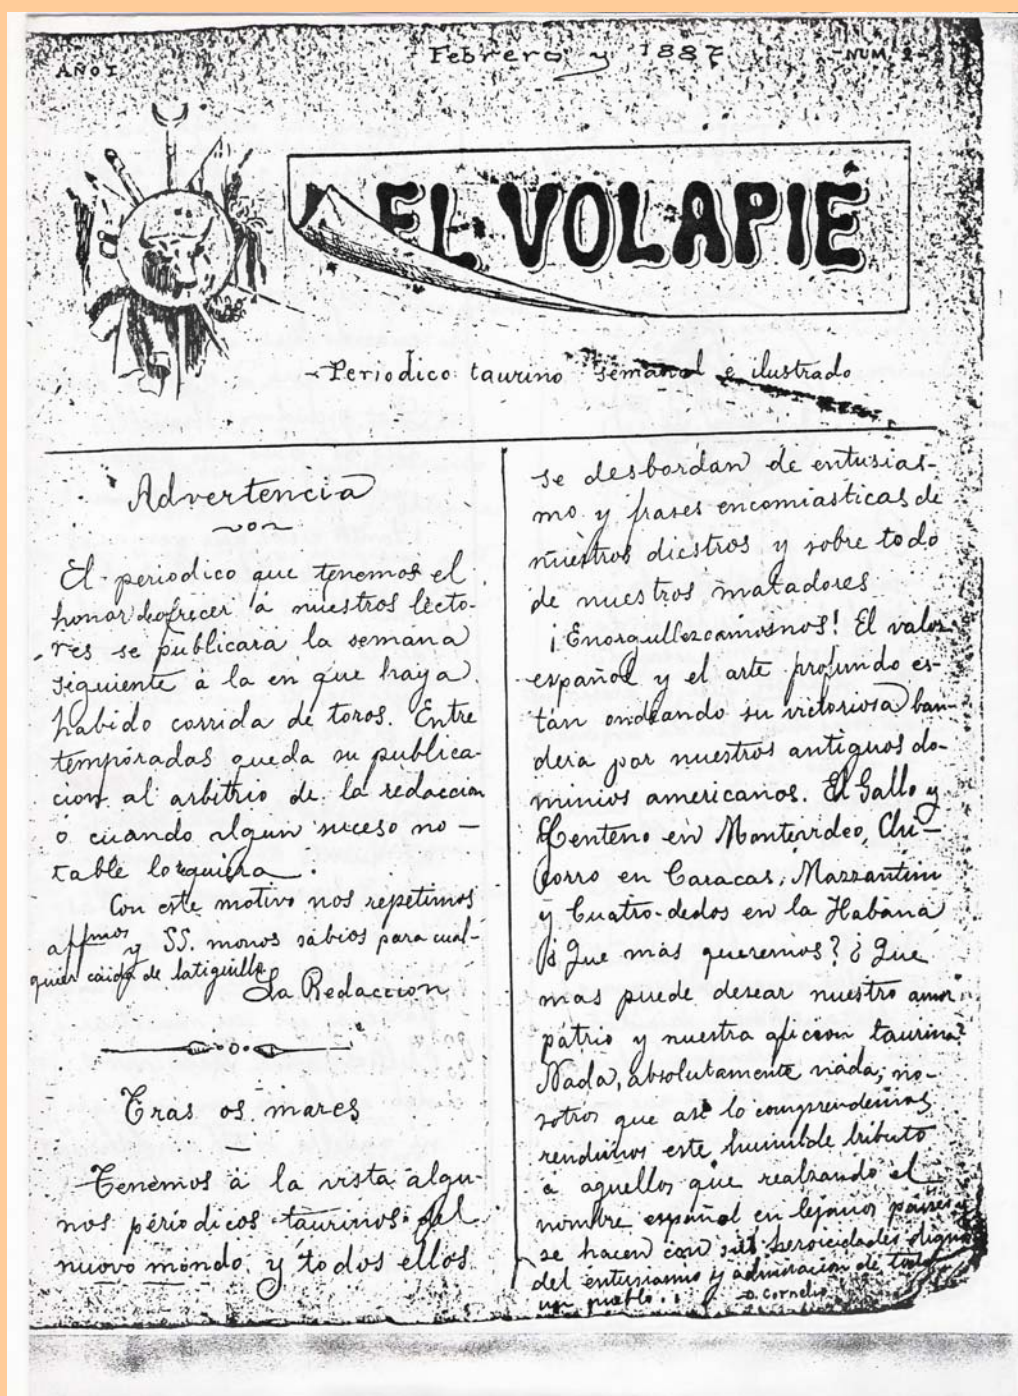 AÑO I
Febrero y 1887
-NUM. 2-
EL VOLAPIÉ
-Periodico taurino semanal é ilustrado
Advertencia
El periodico que tenemos el
honor de ofrecer á nuestros lecto-
res se publicará la semana
siguiente á la en que haya
habido corrida de toros. Entre
temporadas queda su publica-
cion al arbitrio de la redaccion
o cuando algun suceso no-
table lo requiera.
Con este motivo nos repetimos
affmos y SS. monos sabios para cual-
quier caida de latiguillo
La Redaccion
Tras os mares
Tenemos á la vista algu-
nos périodicos taurinos del
nuovo mondo, y todos ellos
se desbordan de entusias-
mo y frases encomiasticas de
nuestros diestros y sobre todo
de nuestros matadores
¡Enorgullezcamosnos! El valor
español y el arte profundo es-
tán ondeando su victoriosa ban-
dera por nuestros antiguos do-
minios americanos. El Gallo y
Centeno en Montevideo, Chi-
corro en Caracas, Mazzantini
y Cuatro-dedos en la Habana
¿Que mas queremos? ¿Que
mas puede desear nuestro amor
patrio y nuestra aficion taurina?
Nada, absolutamente nada; no-
sotros que asi lo comprendemos
rendimos este humilde tributo
a aquellos que realzando el
nombre español en lejanos paises
se hacen con sus heroicidades dignos
del entusiasmo y admiracion de todo
un pueblo..
D. Cornelio